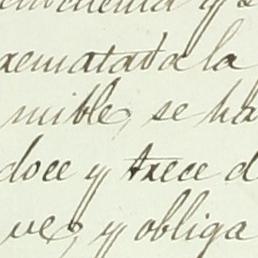 rematada la
mible, se ha
doce y trece d
ve, y obliga